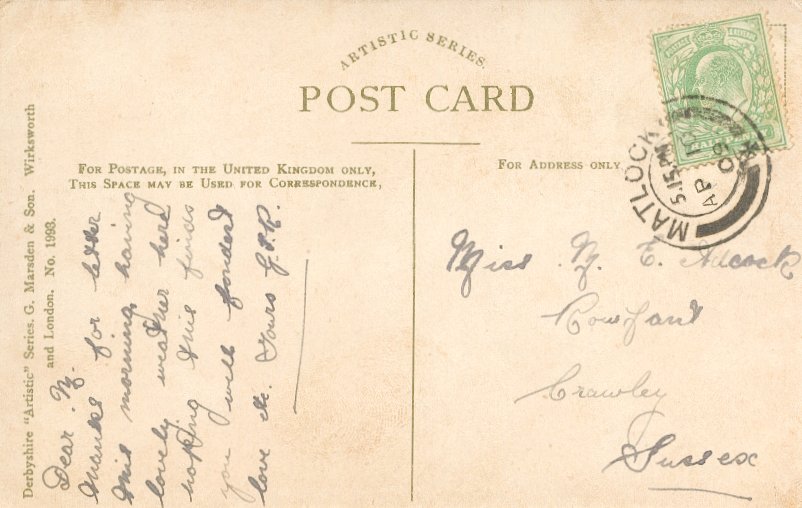 ARTISTIC SERIES.
POST CARD
FOR POSTAGE, IN THE UNITED KINGDOM ONLY,
THIS SPACE MAY BE USED FOR CORRESPONDENCE,
FOR ADDRESS ONLY
Derbyshire "Artistic" Series. G. Marsden & Son. Wirksworth
and London. No. 1993.
Dear N.
thanks for letter
this morning, having
lovely weather here
hoping this finds
you well fondest
love &c. Yours G.P.R.
MATLOCK
5.15PM
AP
09
HALF
Miss N. E. Adcock
Rowfant
Crawley
Sussex